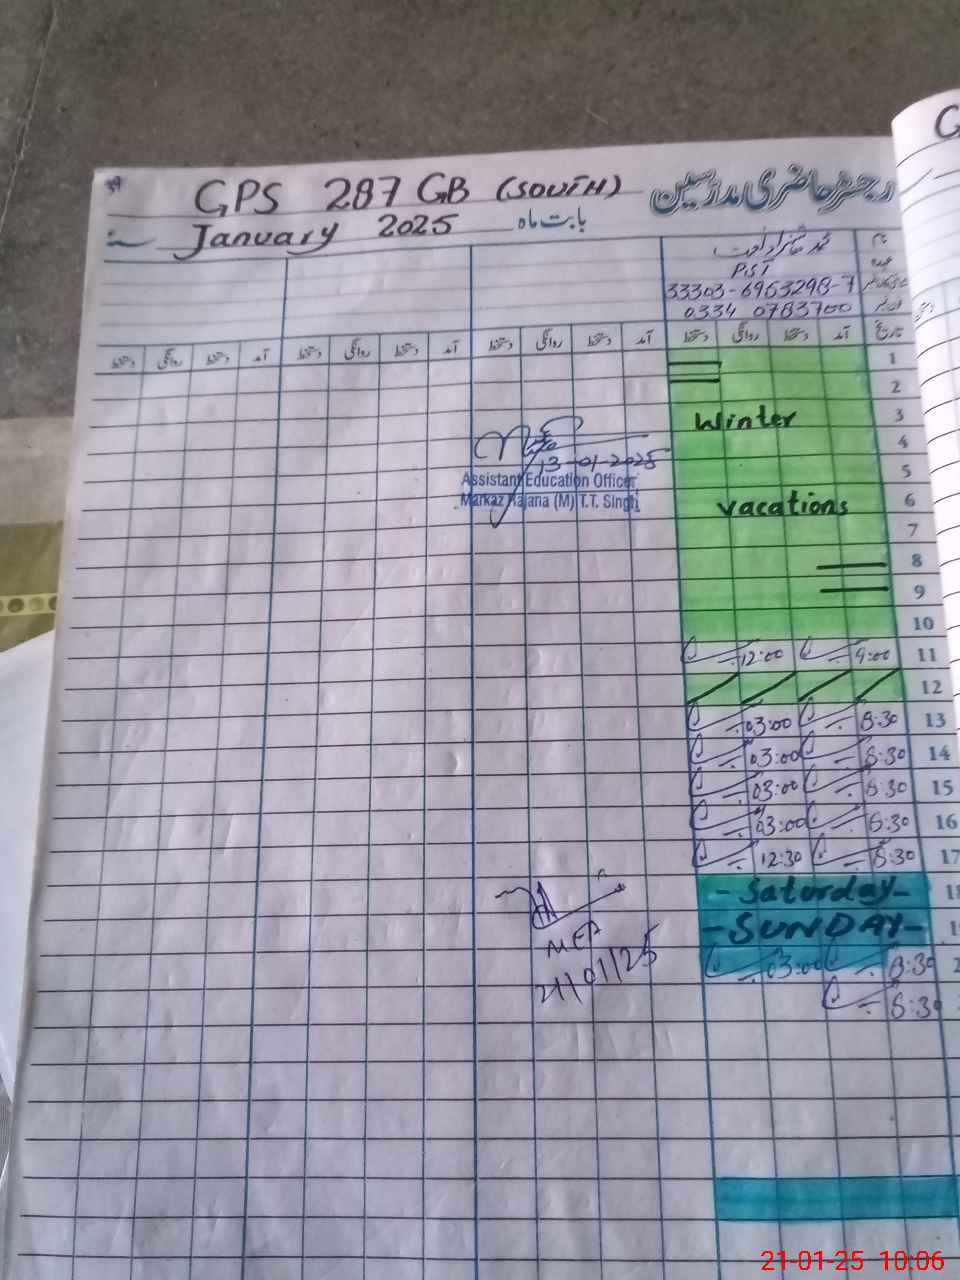 39
GPS 287 GB (SOUTH) رجسٹر حاضری مدرسین
January 2025 بابت ماہ
نام
عہدہ
PST
33303-6963298-7
0334 0783700
تاریخ آمد دستخط روانگی دستخط آمد دستخط روانگی دستخط آمد دستخط روانگی دستخط آمد دستخط روانگی دستخط
1
2
3 Winter
4
13-01-2025
5
Assistant Education Officer
Markaz Rajana (M) T.T. Singh
6 vacations
7
8
9
10
11 9:00 12:00
12
13 8:30 03:00
14 8:30 03:00
15 8:30 03:00
16 8:30 03:00
17 8:30 12:30
18 - Saturday -
- SUNDAY -
8:30 03:00
8:30
MEA
21/01/25
21-01-25 10:06